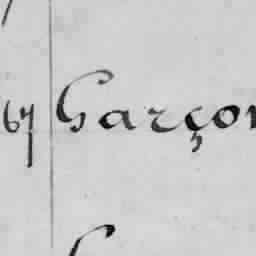 67 Garçon